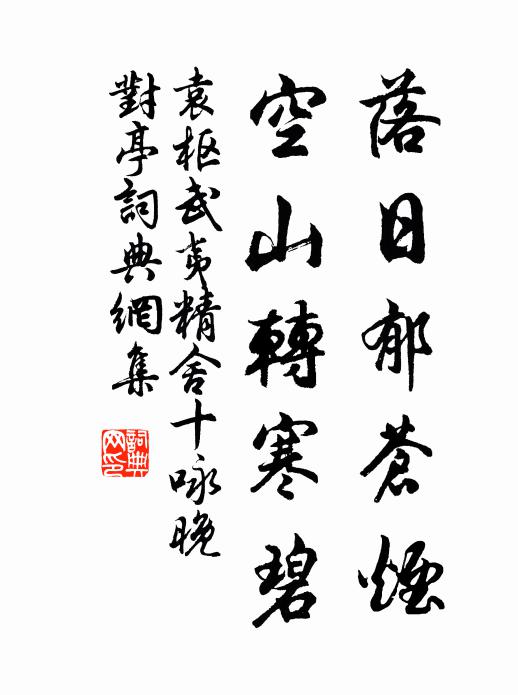 落日郁蒼煙
空山轉寒碧
袁枢武夷精舍十咏晚
對亭詞典網集
詞典
网印